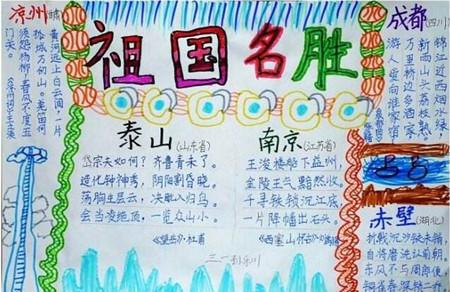 祖国名胜
凉州(甘肃)
黄河远上白云间，一片
孤城万仞山。羌笛何
须怨杨柳，春风不度玉
门关。
《凉州词》王之涣
泰山(山东省)
岱宗夫如何？齐鲁青未了。
造化钟神秀，阴阳割昏晓。
荡胸生层云，决眦入归鸟。
会当凌绝顶，一览众山小。
《望岳》·杜甫
南京(江苏省)
王浚楼船下益州，
金陵王气黯然收。
千寻铁锁沉江底，
一片降幡出石头。
《西塞山怀古》
成都(四川)
锦江近西烟水绿，
新雨山头荔枝熟。
万里桥边多酒家，
游人爱向谁家宿
赤壁(湖北)
折戟沉沙铁未销，
自将磨洗认前朝。
东风不与周郎便，
铜雀春深锁二乔。
三一